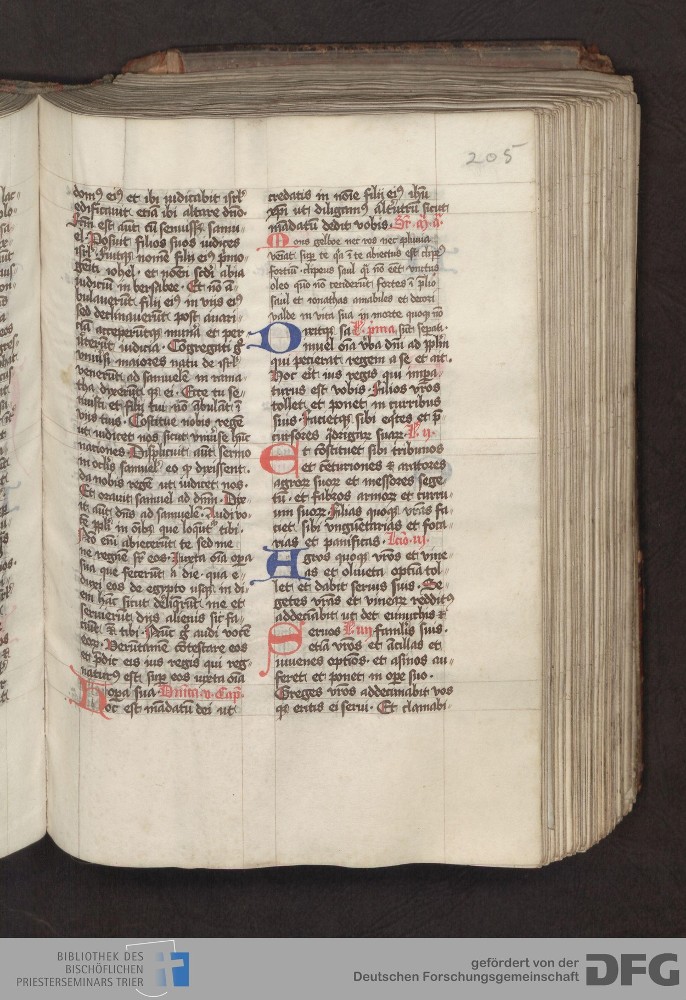 205
domꝰ eiꝰ et ibi iudicabit isrl̄
edificauit etiā ibi altare dn̄o.
Fcm̄ est aūt cū senuiss; samu-
el Posuit filios suos iudices
isrl̄ fuitqꝫ nomē filij eiꝰ p̄mo-
geīti iohel. et nom̄ scdi abia
iudicū in bersabee. Et nō ā-
bulauerūt filij eiꝰ in vijs eiꝰ
sed declinauerūt post auari-
ciā acceperūtqꝫ mun̄a et per-
uerterūt iudicia. Cōgregati gͦ
vniūsi maiores natu de isrl̄
venerūt ad samuelē in rama-
tha dixerūtqꝫ ei. Ecce tu se-
nuisti et filij tui nō ābulāt ī
vijs tuis. Cōstitue nobis regē
ut iudicet nos sicut vniūse hn̄t
nationes Displicuit aūt sermo
in oc̄lis samuel eo ꝙ dixissent.
da nobis regē ut iudicet nos.
Et orauit samuel ad dn̄m. Dix-
it aūt dn̄s ad samuelē Audi vo-
cē ppl̄i in oībꝫ que loqūt᷑ tibi.
Nō em̄ te abiecerūt sed me
ne regnē sr̄ eos. Iuxta oīa opa
sua que fecerūt a die qua e-
duxi eos de egypto usqꝫ in di-
em hāc sicut deliqrūt me et
seruierūt dijs alienis sic fa-
ciūt ꝛ tibi. Nūc gͦ audi vocē
eoꝝ. Verutamē cōtestare eos
et p̄dic eis ius regis qui reg-
naturꝰ est sup̄ eos iuxta oīa
opa sua. Dn̄ica v. Cap̄.
Hoc est mādatū dei ut
credatis in noīe filij eiꝰ ihū
xp̄i ut diligamꝰ alt᷑utrū sicut
mādatū dedit vobis.
Mons gelboe nec ros nec pluuia
veīat sup̄ te qꝛ ī te abiectus est clipeꝰ
fortiū. clipeus saul qͣi nō eēt vnctus
oleo quō ceciderūt fortes ī p̄lio
saul et ionathas amabiles et decori
valde in vita sua in morte quoqꝫ nō
sūt sepati. L. p̄ma
Dixitqꝫ sa-
muel oīa v̄ba dn̄i ad pplm̄
qui pecierat regem a se et ait.
Hoc erit ius regis qui impa-
turus est vobis. Filios vr̄os
tollet et ponet in curribus
suis. Facietqꝫ sibi eqͥtes et p̄-
cursores qͣdrigaꝝ suaꝝ. L. ij.
Et cōstituet sibi tribunos
et cēturiones ꝛ aratores
agroꝝ suoꝝ et messores sege-
tū. et fabros armoꝝ et curru-
um suoꝝ. Filias quoqꝫ vr̄as fa-
ciet sibi vnguētarias et foca-
rias et panificas. Lcīo. iij.
Agros quoqꝫ vr̄os et vine-
as et oliueta optīa tol-
let et dabit seruis suis. Se-
getes vr̄as et vineaꝝ redditꝰ
addecīabit ut det eunuchis ꝛ
famlis suis. L. iiij
Seruos
etiā vr̄os et ācillas et
iuuenes optīos. et asinos au-
feret et ponet in ope suo.
Greges vr̄os addecimabit vos
qꝫ eritis ei serui. Et clamabi-
BIBLIOTHEK DES
BISCHÖFLICHEN
PRIESTERSEMINARS TRIER
gefördert von der
Deutschen Forschungsgemeinschaft
DFG